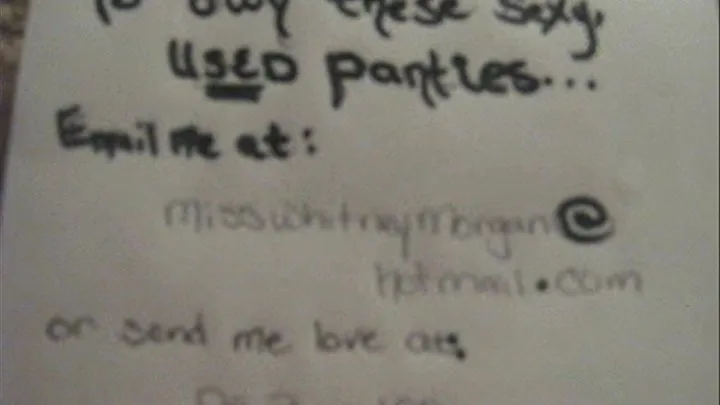 To buy these sexy,
USED panties...
Email me at:
misswhitneymorgan@
hotmail.com
or send me love at: